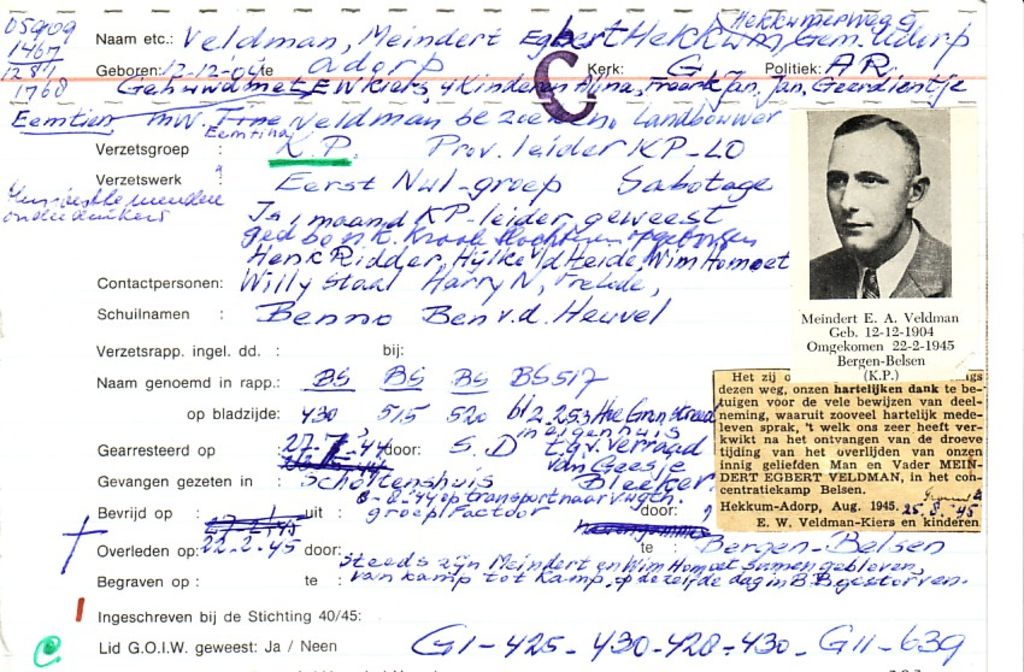 059909
1467
1281
1768
Hekkumerweg 9
Naam etc.: Veldman, Meindert Egbert Hekkum Gem. Adorp
Geboren: 12-12-04 te Adorp Kerk: G Politiek: AR.
C
Gehuwd met E W Kiers, 4 Kinderen Jan, Jan, Geerdientje
Eemtien mw. Veldman bezoeken, Landbouwer
Eemtina
Verzetsgroep : K.P. Prov. leider KP-LO
Verzetswerk : Eerst Nul-groep Sabotage
onderduikers
Is 1 maand KP-leider geweest
Henk Ridder, Hijlke v/d Heide, Wim Homoet
Contactpersonen: Willy Staal Harry N,
Schuilnamen : Benno Ben v.d. Heuvel
Verzetsrapp. ingel. dd. : bij:
Naam genoemd in rapp.: BS BS BS BS 517
op bladzijde: 430 515 520 bl 2. 253
in eigen huis
Gearresteerd op 44 door: S.D t.g.v. verraad
van Geesje
Gevangen gezeten in : Scholtenshuis Bleeker.
8-8-44 op transport naar Vugth.
Bevrijd op : uit : groep Factoor door: ?
Overleden op: 22-2-45 door: te : Bergen-Belsen
Steeds zijn Meindert en Wim Homoet samen gebleven,
Begraven op : te : van kamp tot kamp, op dezelfde dag in B.B gestorven.
Ingeschreven bij de Stichting 40/45:
Lid G.O.I.W. geweest: Ja / Neen GI-425-430-428-430- GII-639
Meindert E. A. Veldman
Geb. 12-12-1904
Omgekomen 22-2-1945
Bergen-Belsen
(K.P.)
Het zij o
dezen weg, onzen hartelijken dank te be-
tuigen voor de vele bewijzen van deel-
neming, waaruit zooveel hartelijk mede-
leven sprak, 't welk ons zeer heeft ver-
kwikt na het ontvangen van de droeve
tijding van het overlijden van onzen
innig geliefden Man en Vader MEIN-
DERT EGBERT VELDMAN, in het con-
centratiekamp Belsen.
Hekkum-Adorp, Aug. 1945. 25.8.'45
E. W. Veldman-Kiers en kinderen